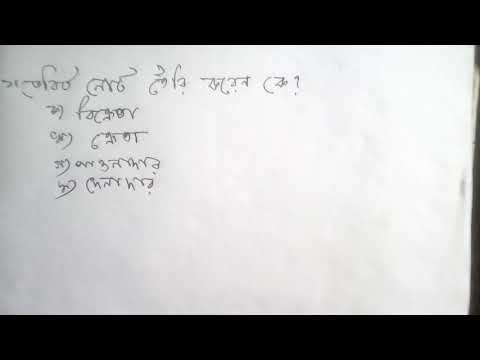 ১। ডেবিট নোট তৈরি করেন কে?
ক) বিক্রেতা
খ) ক্রেতা
গ) পাওনাদার
ঘ) দেনাদার